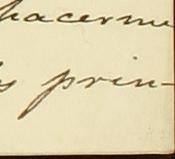 hacerme
s prin-